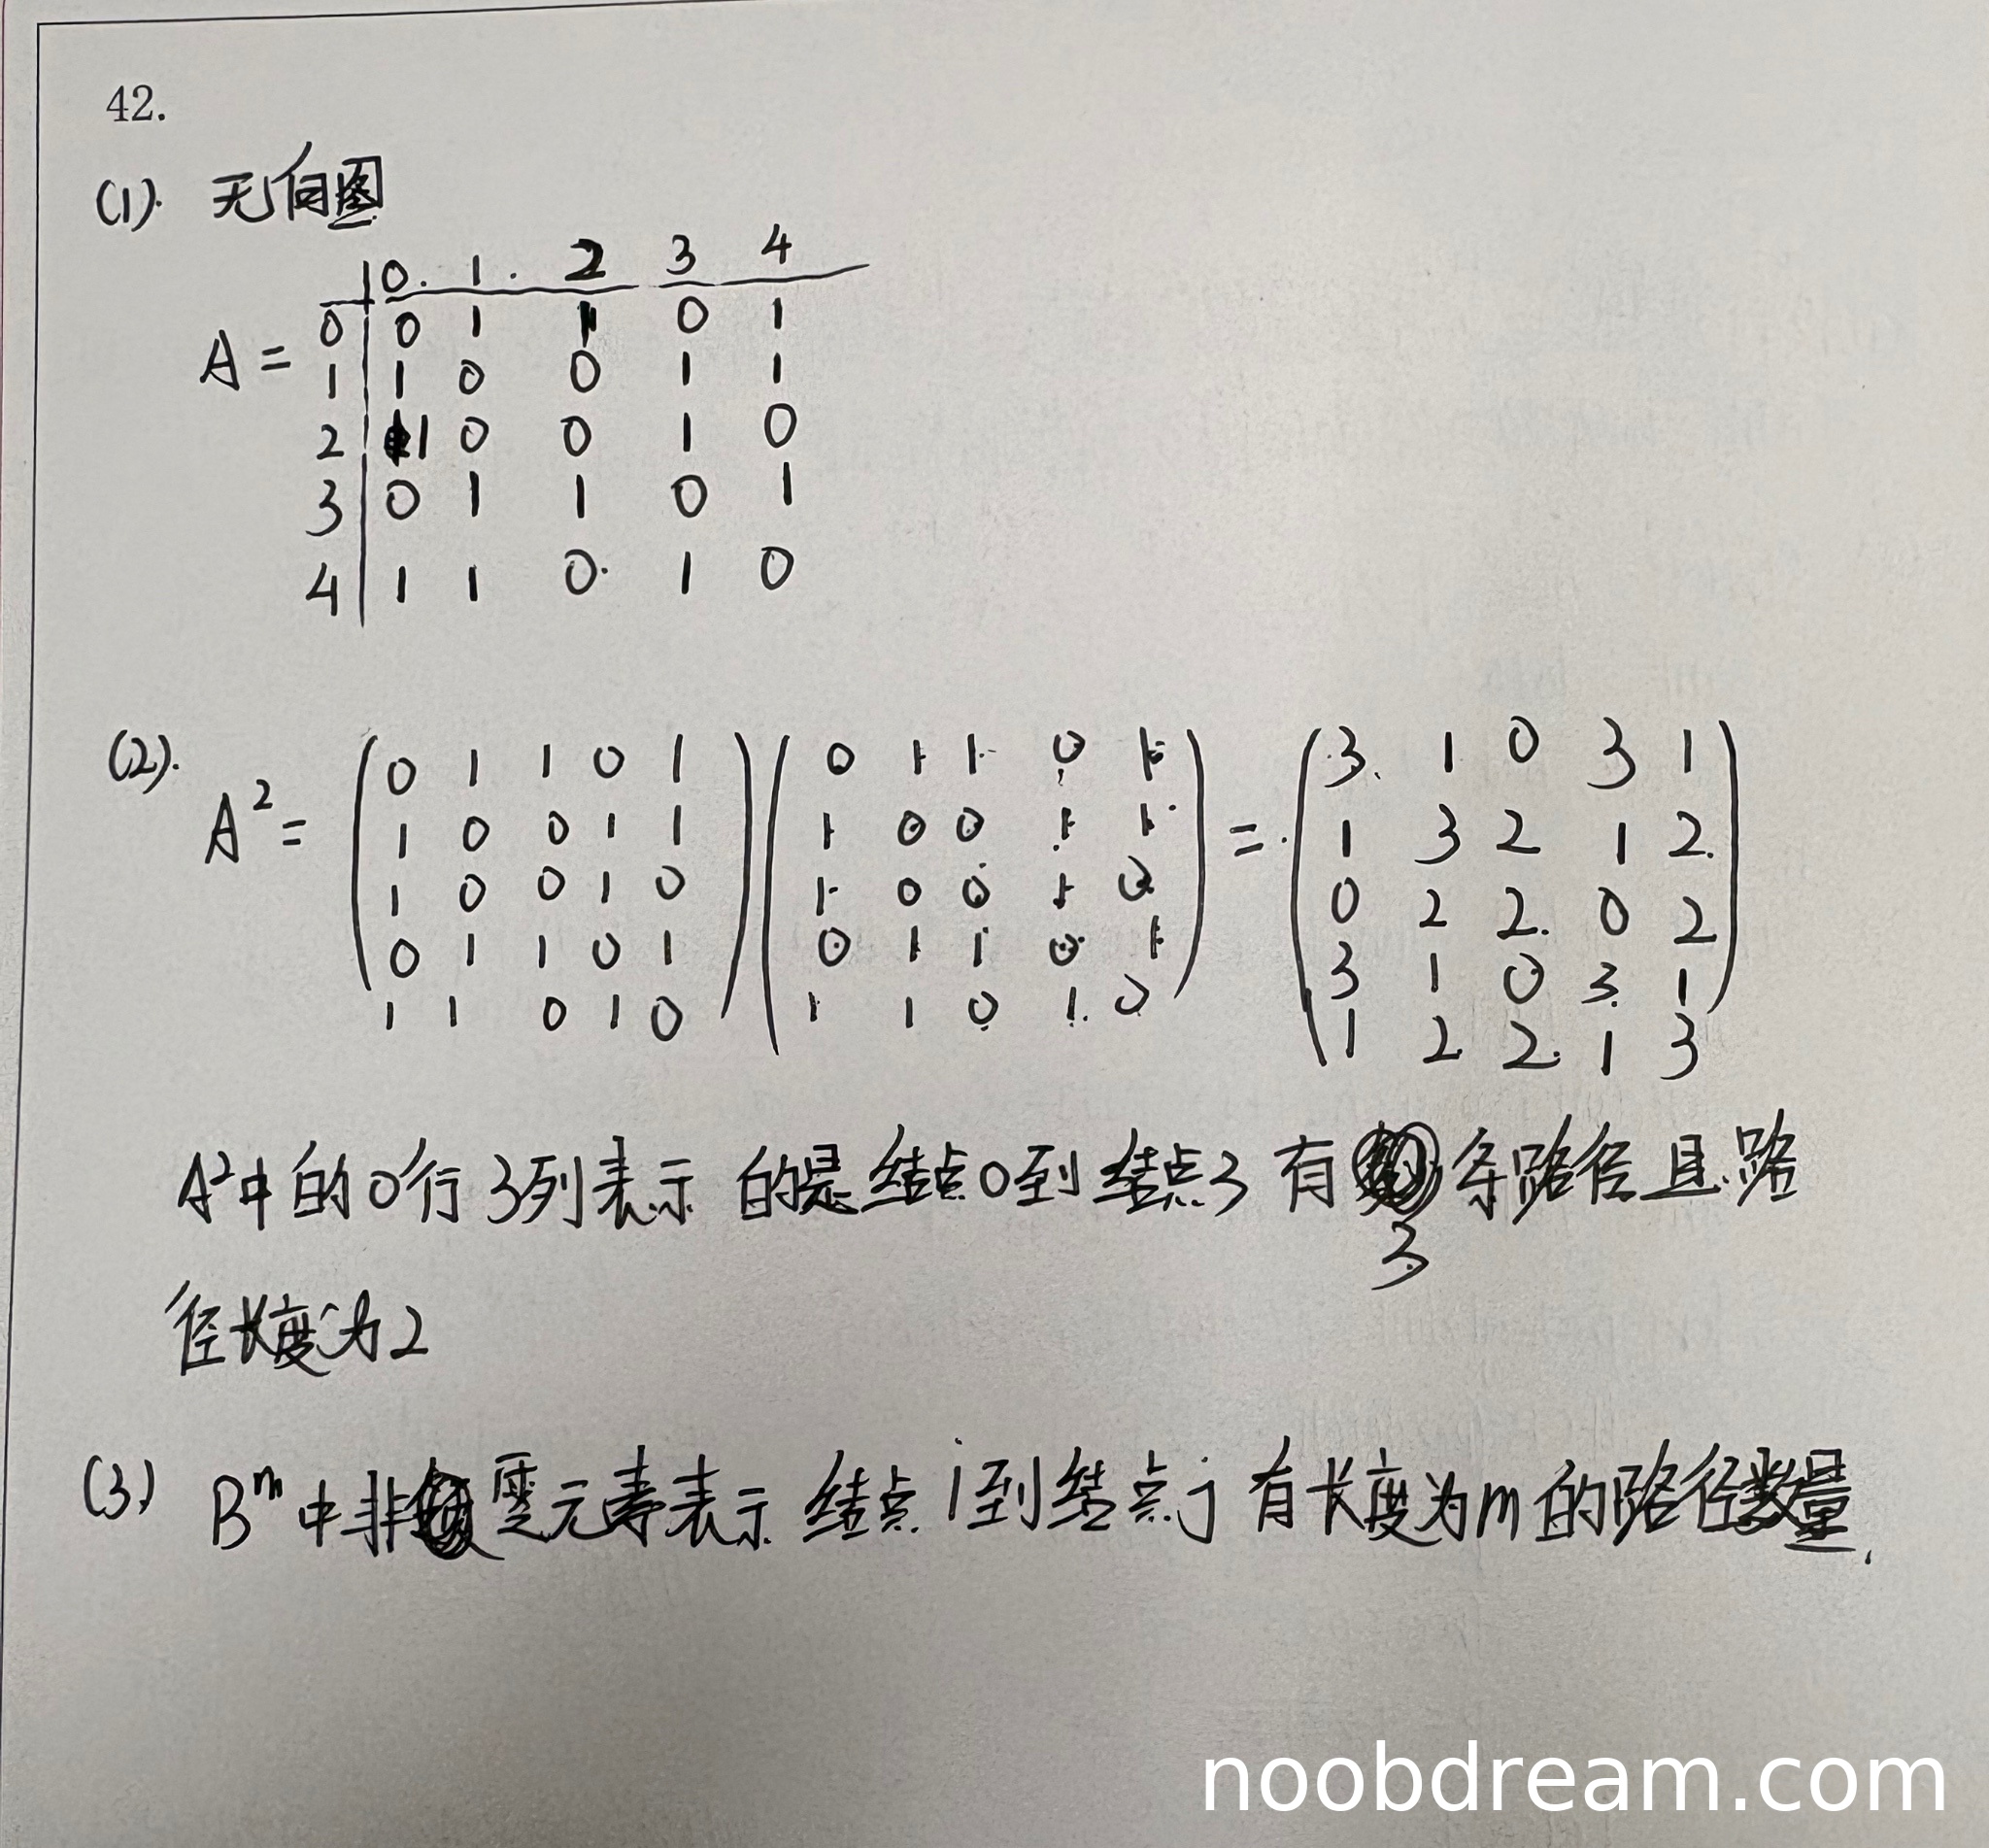 42.
(1). 无向图
0. 1. 2 3 4
0 0 1 1 0 1
A = 1 1 0 0 1 1
2 1 0 0 1 0
3 0 1 1 0 1
4 1 1 0. 1 0
(2).
A² = ( 0 1 1 0 1 ) ( 0 1 1 0 1 ) = ( 3 1 0 3 1 )
1 0 0 1 1 1 0 0 1 1 1 3 2 1 2
1 0 0 1 0 1 0 0 1 0 0 2 2 0 2
0 1 1 0 1 0 1 1 0 1 3 1 0 3 1
1 1 0 1 0 1 1 0 1 0 1 2 2 1 3
A²中的0行3列表示的是结点0到结点3有3条路径且路
径长度为2
(3) Bᵐ中非零元素表示结点i到结点j有长度为m的路径数量.
noobdream.com